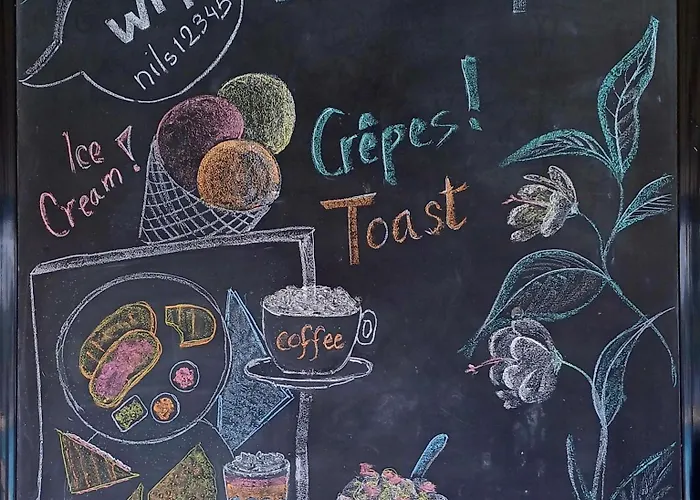 nils12345
Ice
Cream!
Crêpes!
Toast
coffee